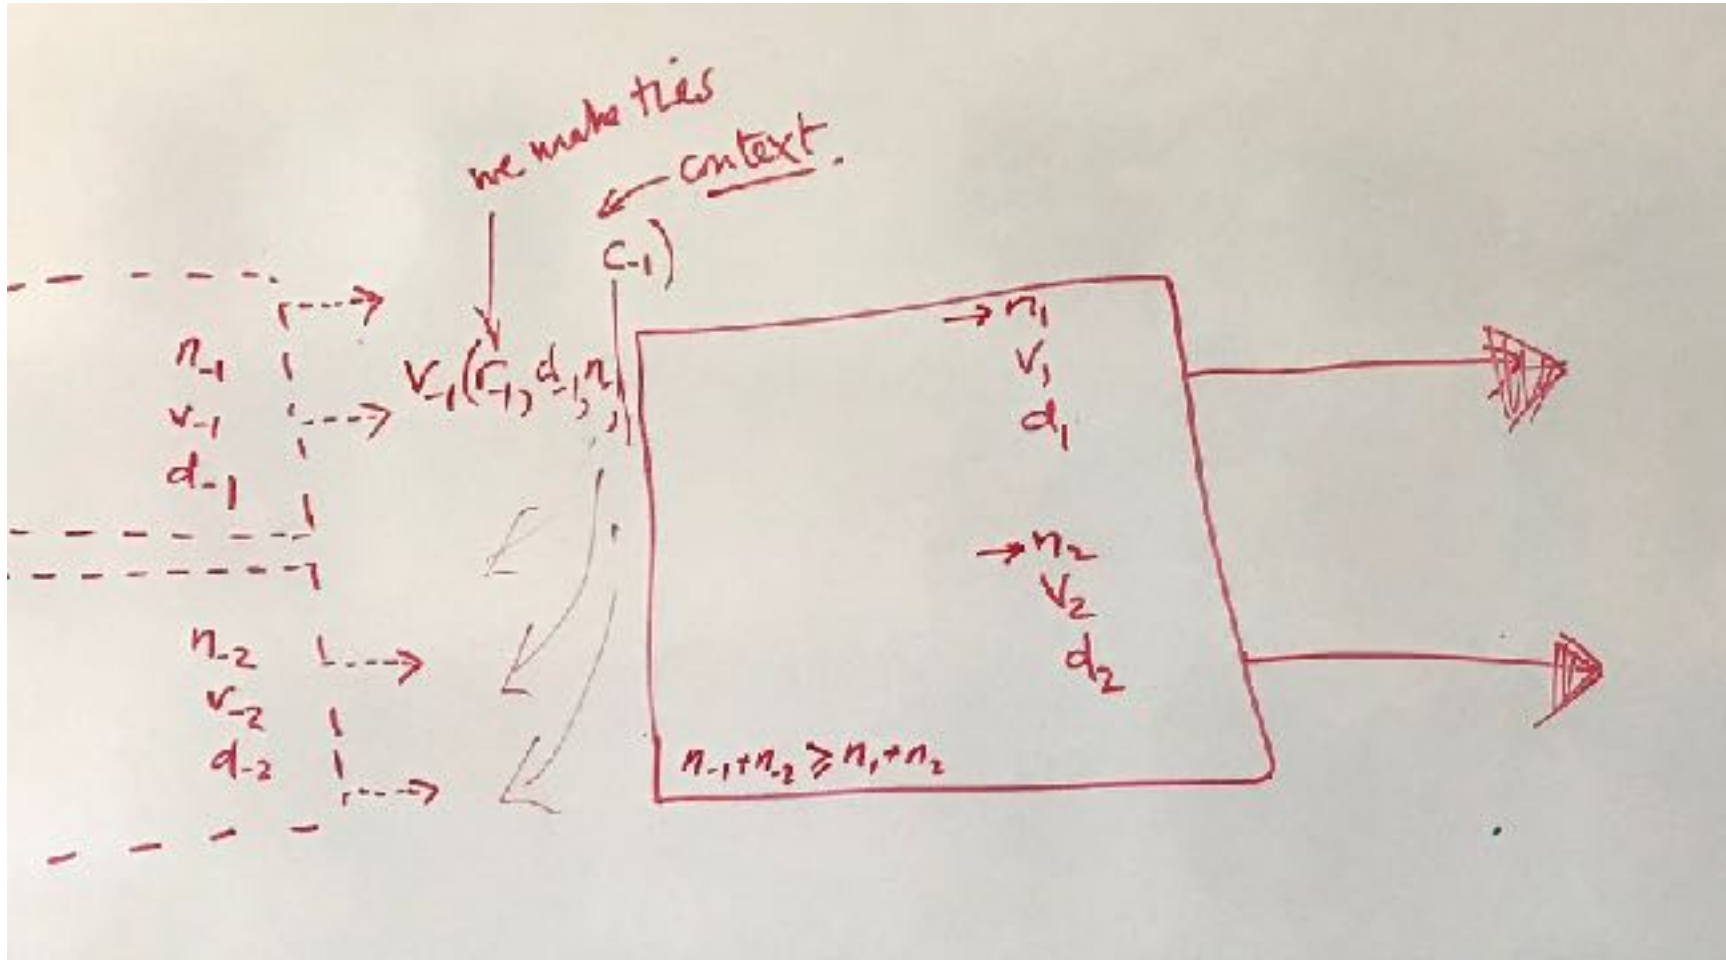 we make this
context.
c₋₁)
n₋₁
v₋₁
d₋₁
V₋₁(r₋₁, d₋₁, n₁,
n₁
v₁
d₁
n₂
v₂
d₂
n₋₂
v₋₂
d₋₂
n₋₁+n₋₂ ⩾ n₁+n₂